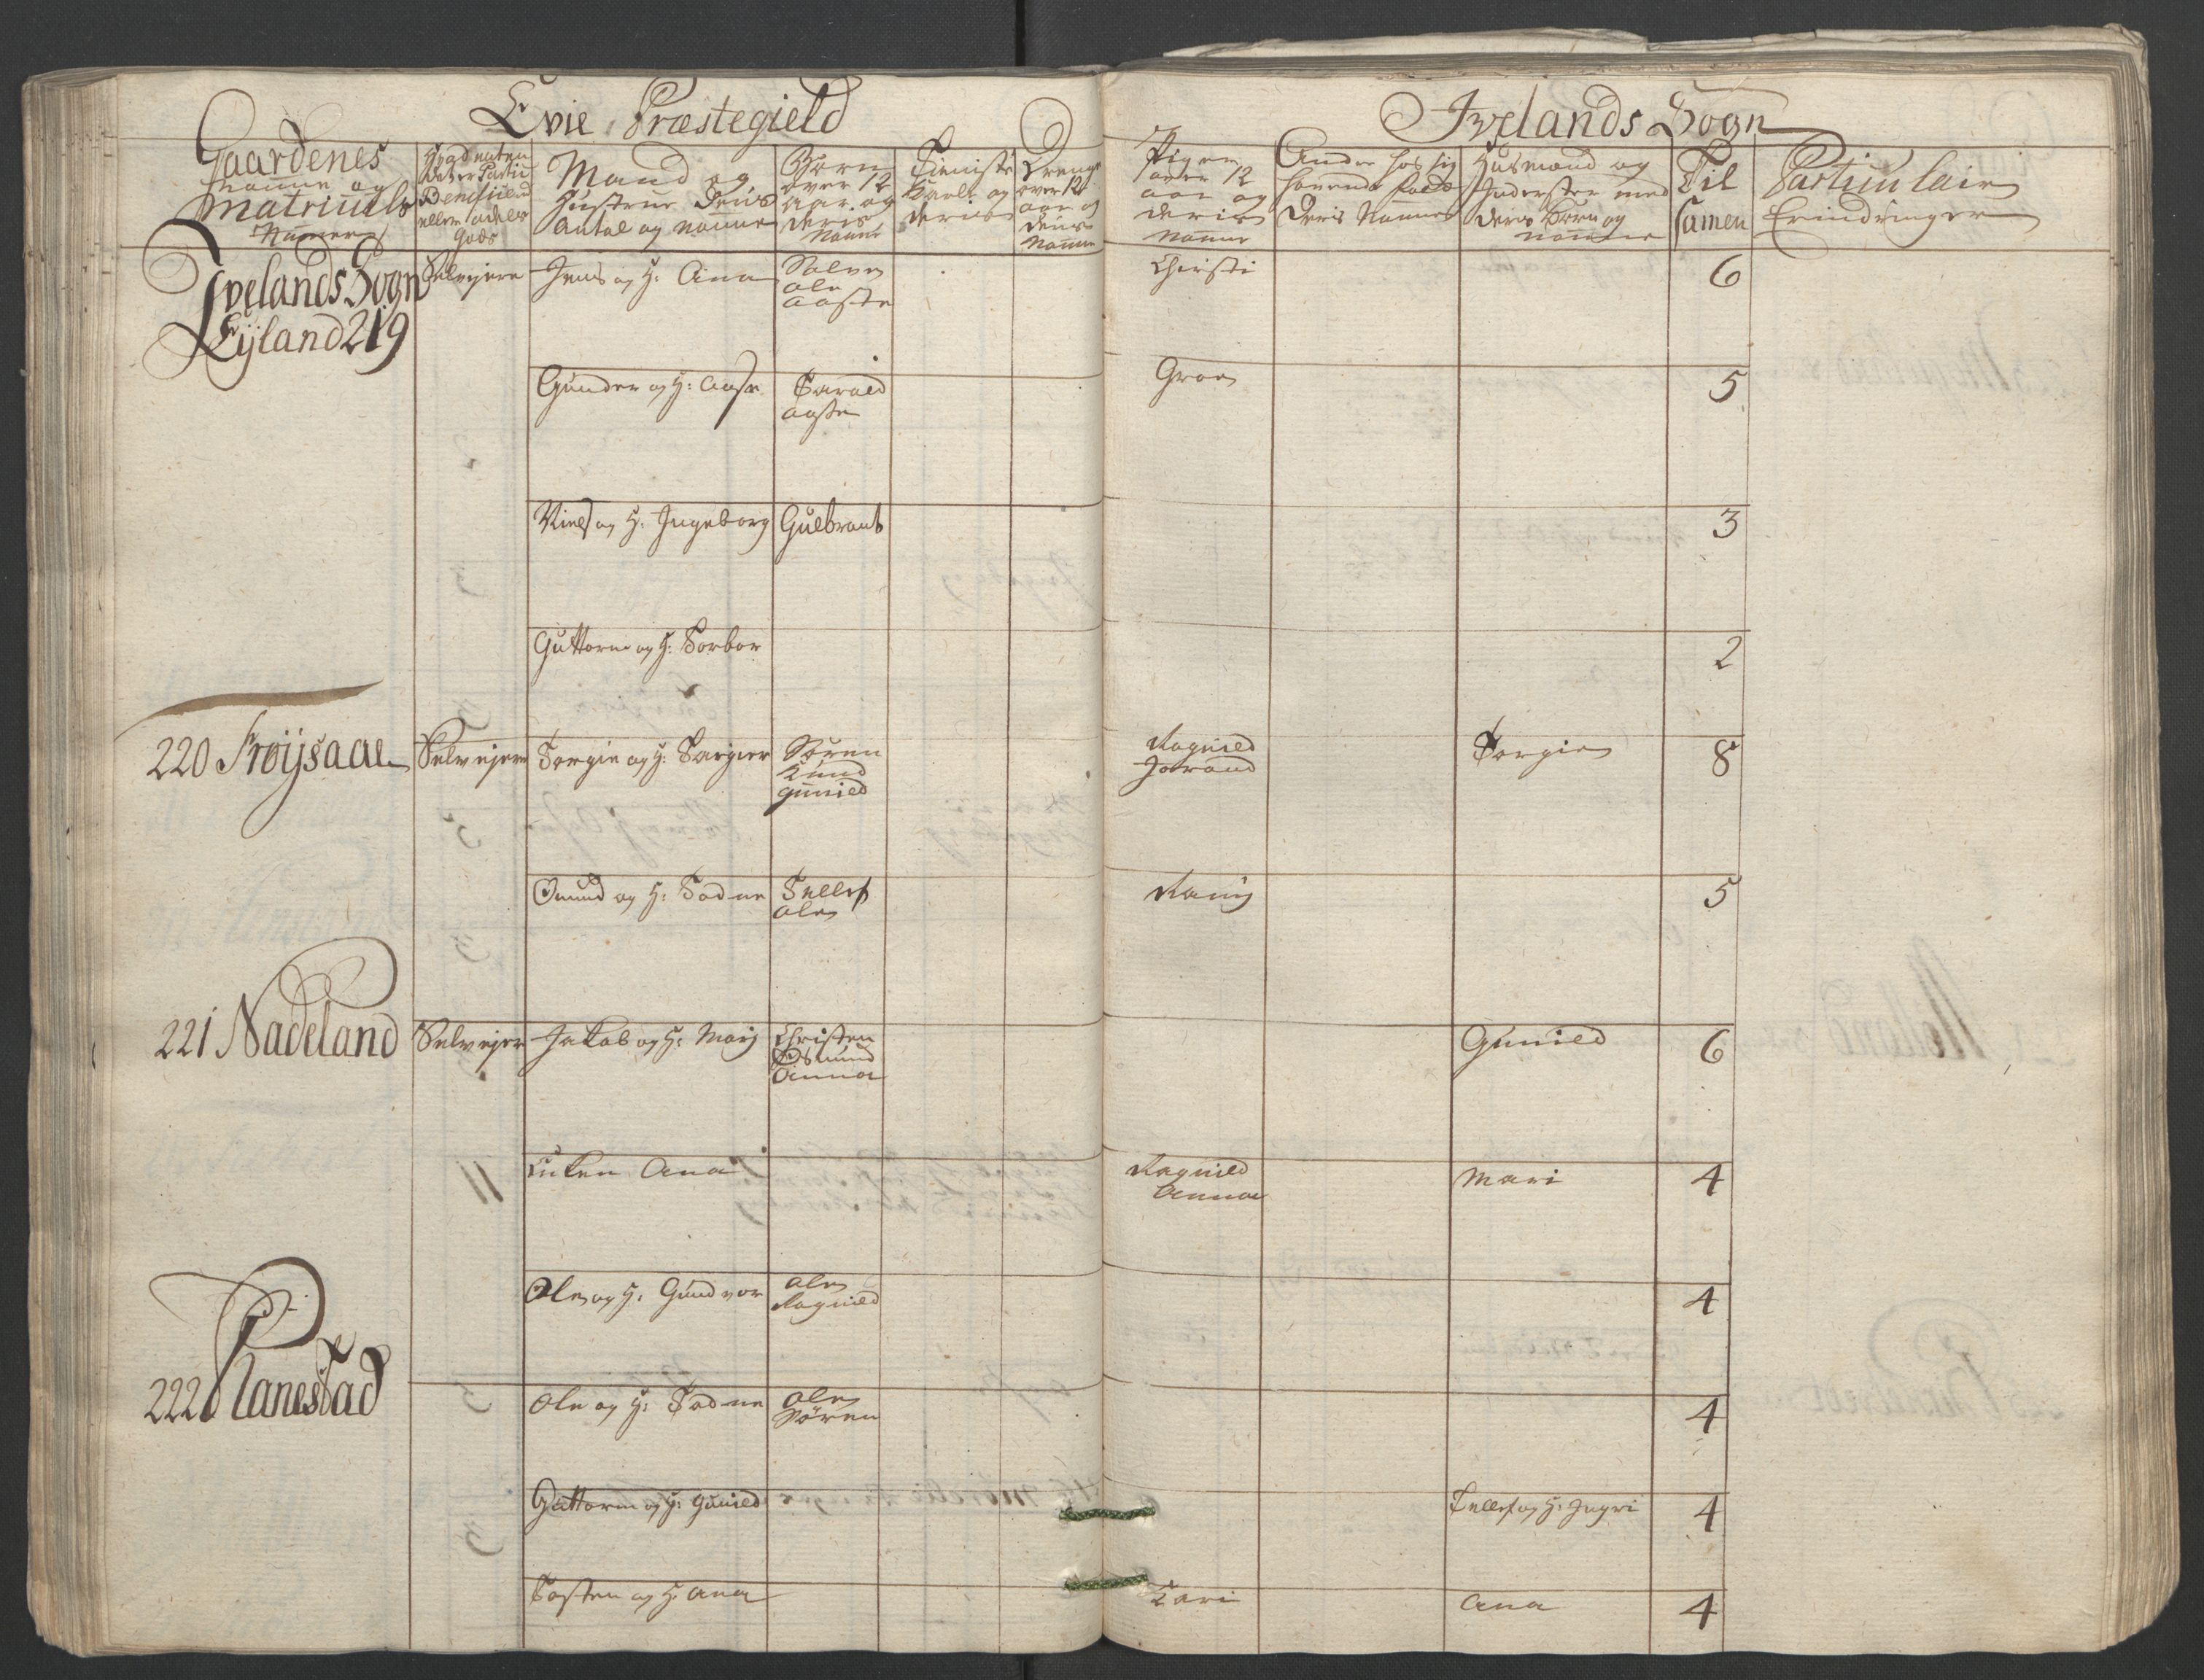 Evie Præstegield
Ivelands Sogn
Gaardenes
Nafne og
Matriculs
Numer
eller
Gods
Mand og
Hustrue Deris
Antal og Nafne
Børn
over 12
Aar og
Deris
Nafne
Tieniste
Karle og
Deris
Drenge
over 12
aar og
Deris
Nafne
Piger
over 12
aar og
Deris
Nafne
Andre hos sig
havende
Deris Nafne
Husmænd og
Inderster med
Deres Børn og
Nafne
Til
samen
Particulair
Erindringer
Ivelands Sogn
Eijland 219
Selvejere
Jens og H: Ana
Salve
Ole
Aaste
Christi
6
Gunder og H: Aase
Tarald
Aaste
Groe
5
Niels og H: Ingeborg
Gulbrant
3
Guttorm og H: Torbor
2
220 Frøijsaae
Selvejere
Torgie og H: Targier
Søren
Knud
Gunild
Ragnild
Jorand
Torgie
8
Omund og H: Todne
Tellef
Ole
Ranij
5
221 Nadeland
Selvejer
Jakob og H: Marij
Christen
Osmund
Anna
Gunild
6
Enken Ana
Ragnild
Anna
Mari
4
Ole og H: Gundvor
Ole
Ragnild
4
222 Ranestad
Ole og H: Todne
Ole
Søren
4
Guttorm og H: Gunild
Tellef og H: Ingri
4
Tosten og H: Ana
Kari
Ana
4